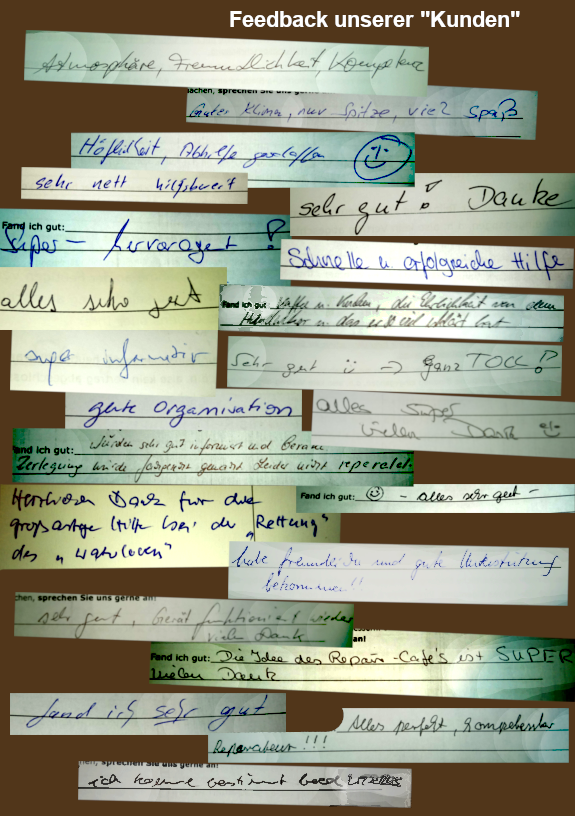 Feedback unserer "Kunden"
Atmosphäre, Freundlichkeit, Kompetenz
machen, sprechen Sie uns gerne
Gutes Klima, nur Spitze, viel Spaß
Höflichkeit, Abhilfe geschaffen
sehr nett hilfsbereit
sehr gut! Danke
Fand ich gut:
Super - hervoragent!
Schnelle u. erfolgreiche Hilfe
alles sehr gut
Fand ich gut
Kaffee u. Kuchen, die Ehrlichkeit von dem
u. das er so viel hat
super informativ
Sehr gut ü -> ganz TOLL!?
gute Organisation
alles super
vielen Dank
Fand ich gut:
Würden sehr gut informiert und beraten
Zerlegung würde gemacht leider nicht reperabel.
Herzlichen Dank für die
großartige Hilfe bei der "Rettung"
des
Fand ich gut: ☺ - alles sehr gut -
habe freundliche und gute Unterstützung
bekommen!!
chen, sprechen Sie uns gerne an!
sehr gut, Gerät funktioniert wieder
vielen Dank
an!
Fand ich gut: Die Idee des Repair-Café's ist SUPER
Vielen Dank
fand ich sehr gut
Alles perfekt, kompetenter
Reparateur!!!
hen, sprechen Sie uns gerne an!
ich komme bestimmt bald